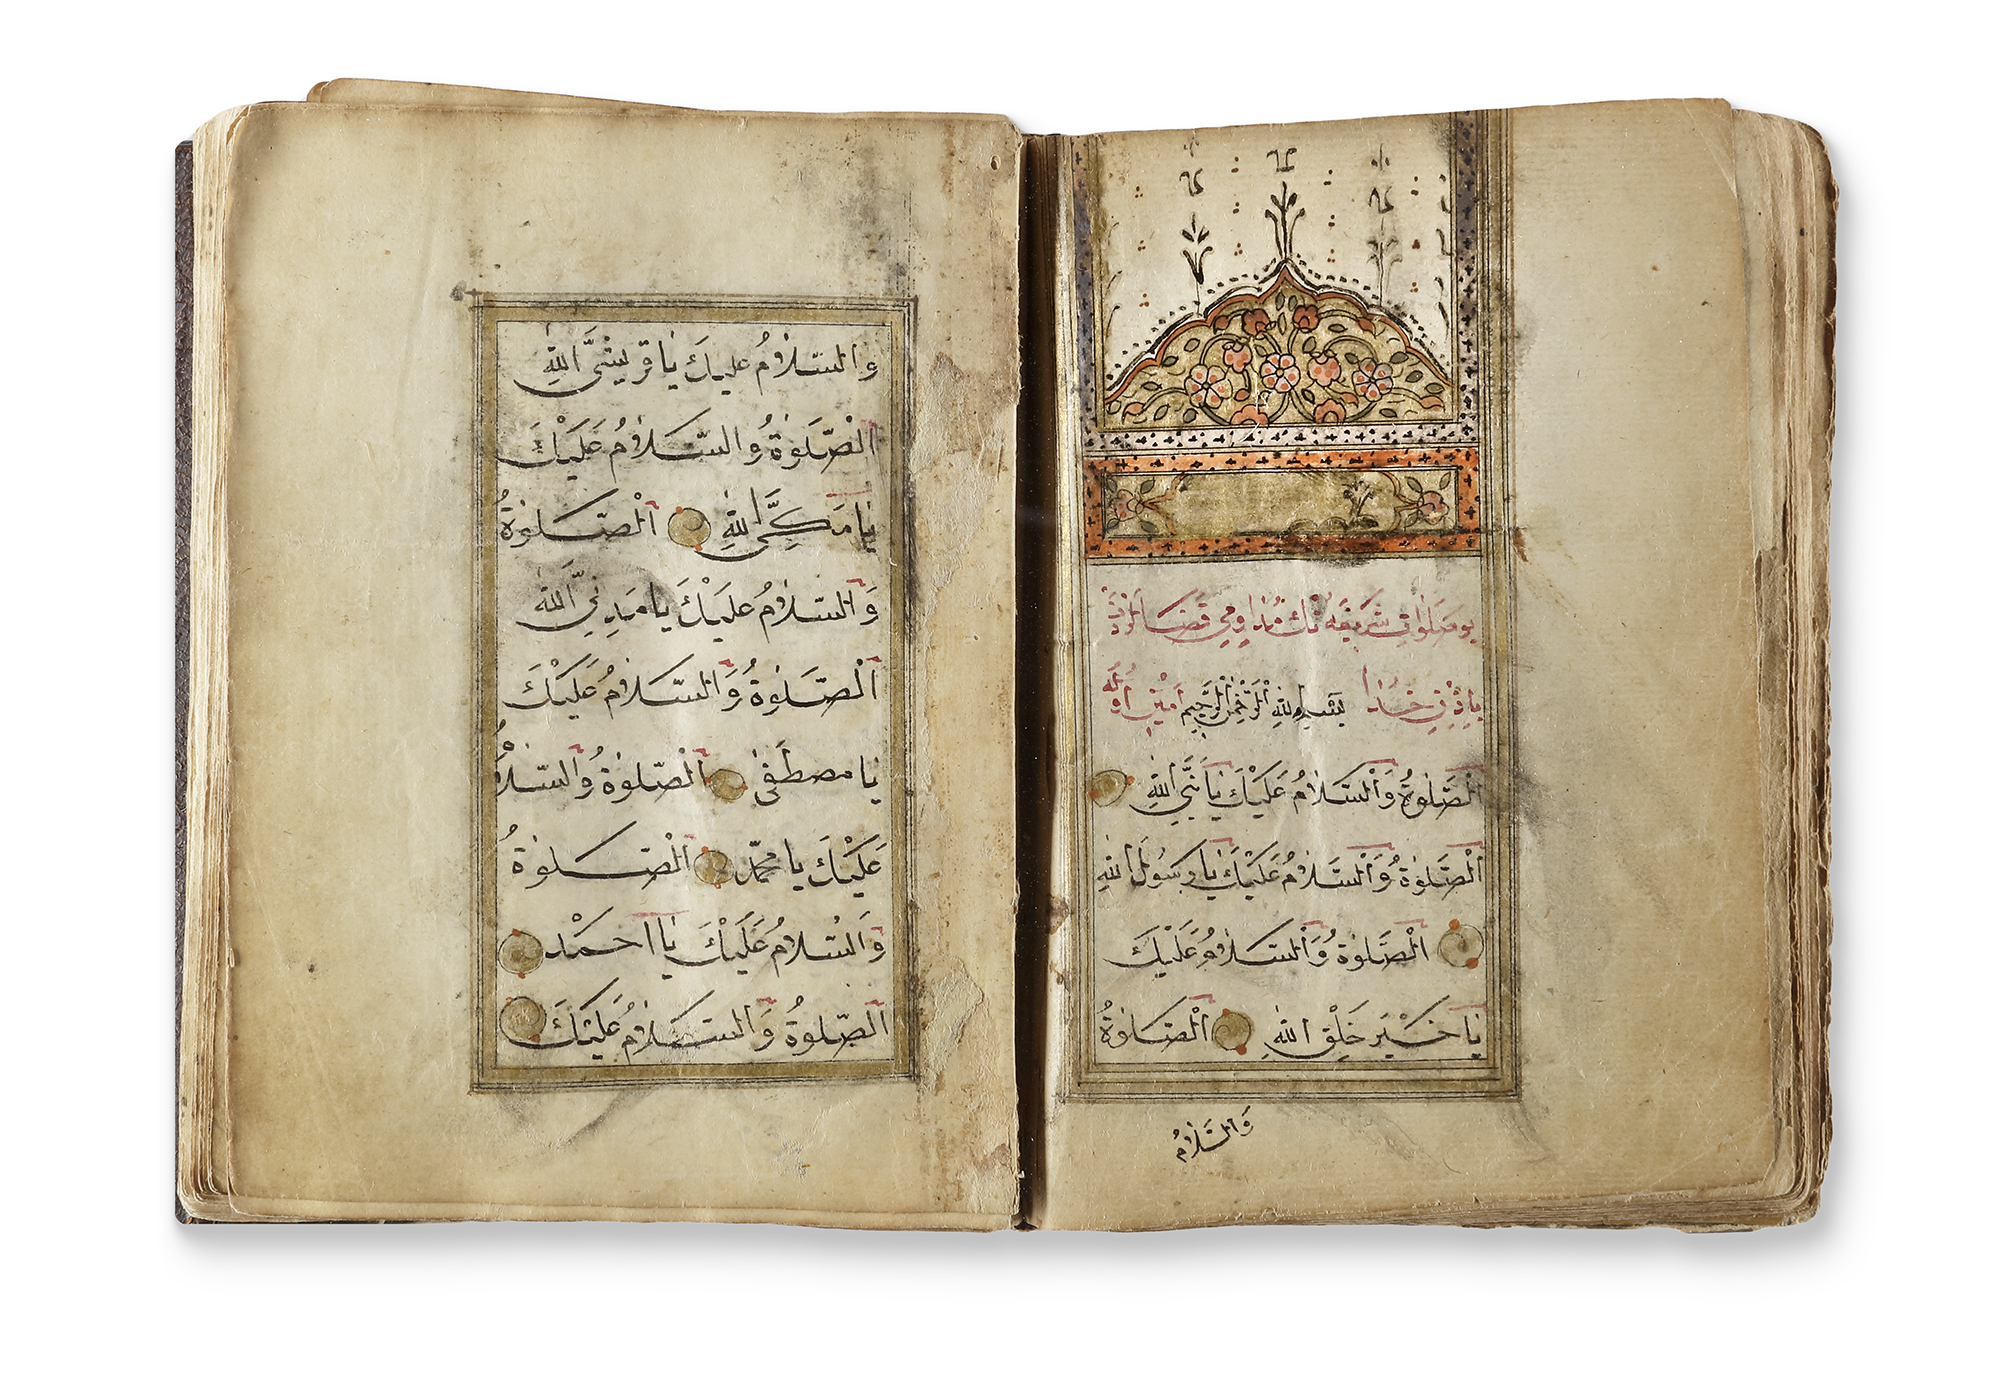 بو صلوات شريفه نك مداومي قضالردن
باذن خدا بسم الله الرحمن الرحيم امين اوله
الصَّلٰوةُ وَالسَّلَامُ عَلَيْكَ يَا نَبِيَّ اللهِ
اَلصَّلٰوةُ وَالسَّلَامُ عَلَيْكَ يَا رَسُولَ اللهِ
اَلصَّلٰوةُ وَالسَّلَامُ عَلَيْكَ
يَا خَيْرَ خَلْقِ اللهِ اَلصَّلٰوةُ
وَالسَّلَامُ
وَالسَّلَامُ عَلَيْكَ يَا قريشيَّ اللهِ
اَلصَّلٰوةُ وَالسَّلَامُ عَلَيْكَ
يَا مَكِّيَّ اللهِ اَلصَّلٰوةُ
وَالسَّلَامُ عَلَيْكَ يَا مَدِنِيَّ اللهِ
اَلصَّلٰوةُ وَالسَّلَامُ عَلَيْكَ
يَا مصطَفٰى اَلصَّلٰوةُ وَالسَّلَامُ
عَلَيْكَ يَا محمَّد اَلصَّلٰوةُ
وَالسَّلَامُ عَلَيْكَ يَا احمَدْ
اَلصَّلٰوةُ وَالسَّلَامُ عَلَيْكَ